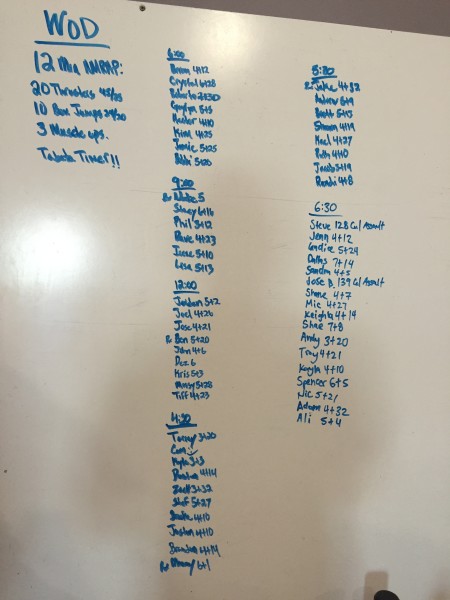 WOD
12 Min AMRAP:
20 Thrusters 45/35
10 Box Jumps 24/20
3 Muscle ups.
Tabata Timer!!
6:00
Brian 4+12
Crystal 6+28
Roberto 2+30
5+5
Hector 4+10
Kim 4+25
Jamie 5+25
Bobbi 5+20
9:00
Rx 5
Stacy 6+16
Phil 5+12
Dave 4+23
Irene 5+10
Lisa 5+13
12:00
Jordan 5+2
Joel 4+26
Jose 4+21
Rx Ben 5+20
John 4+6
Dez 6
Kris 5+3
5+28
Tiff 4+23
4:30
3+20
Cam :)
Kyle 3+3
4+14
Zach 3+32
Stef 5+27
4+10
Justin 4+10
Brandon 4+14
Rx 6+1
5:30
Rx Jake 4+32
Andrew 6+9
Brett 5+13
Shawn 4+19
4+27
Ruth 4+10
Jacob 5+19
Randi 4+8
6:30
Steve 128 Cal Assault
Jenn 4+12
Candice 5+29
Dallas 7+14
Sandra 4+5
Jose B. 139 Cal Assault
Shane 4+7
Mic 4+27
Keighta 4+14
Shae 7+8
Andy 3+20
Tony 4+21
Kayla 4+10
Spencer 6+5
Nic 5+21
Adam 4+32
Ali 5+4